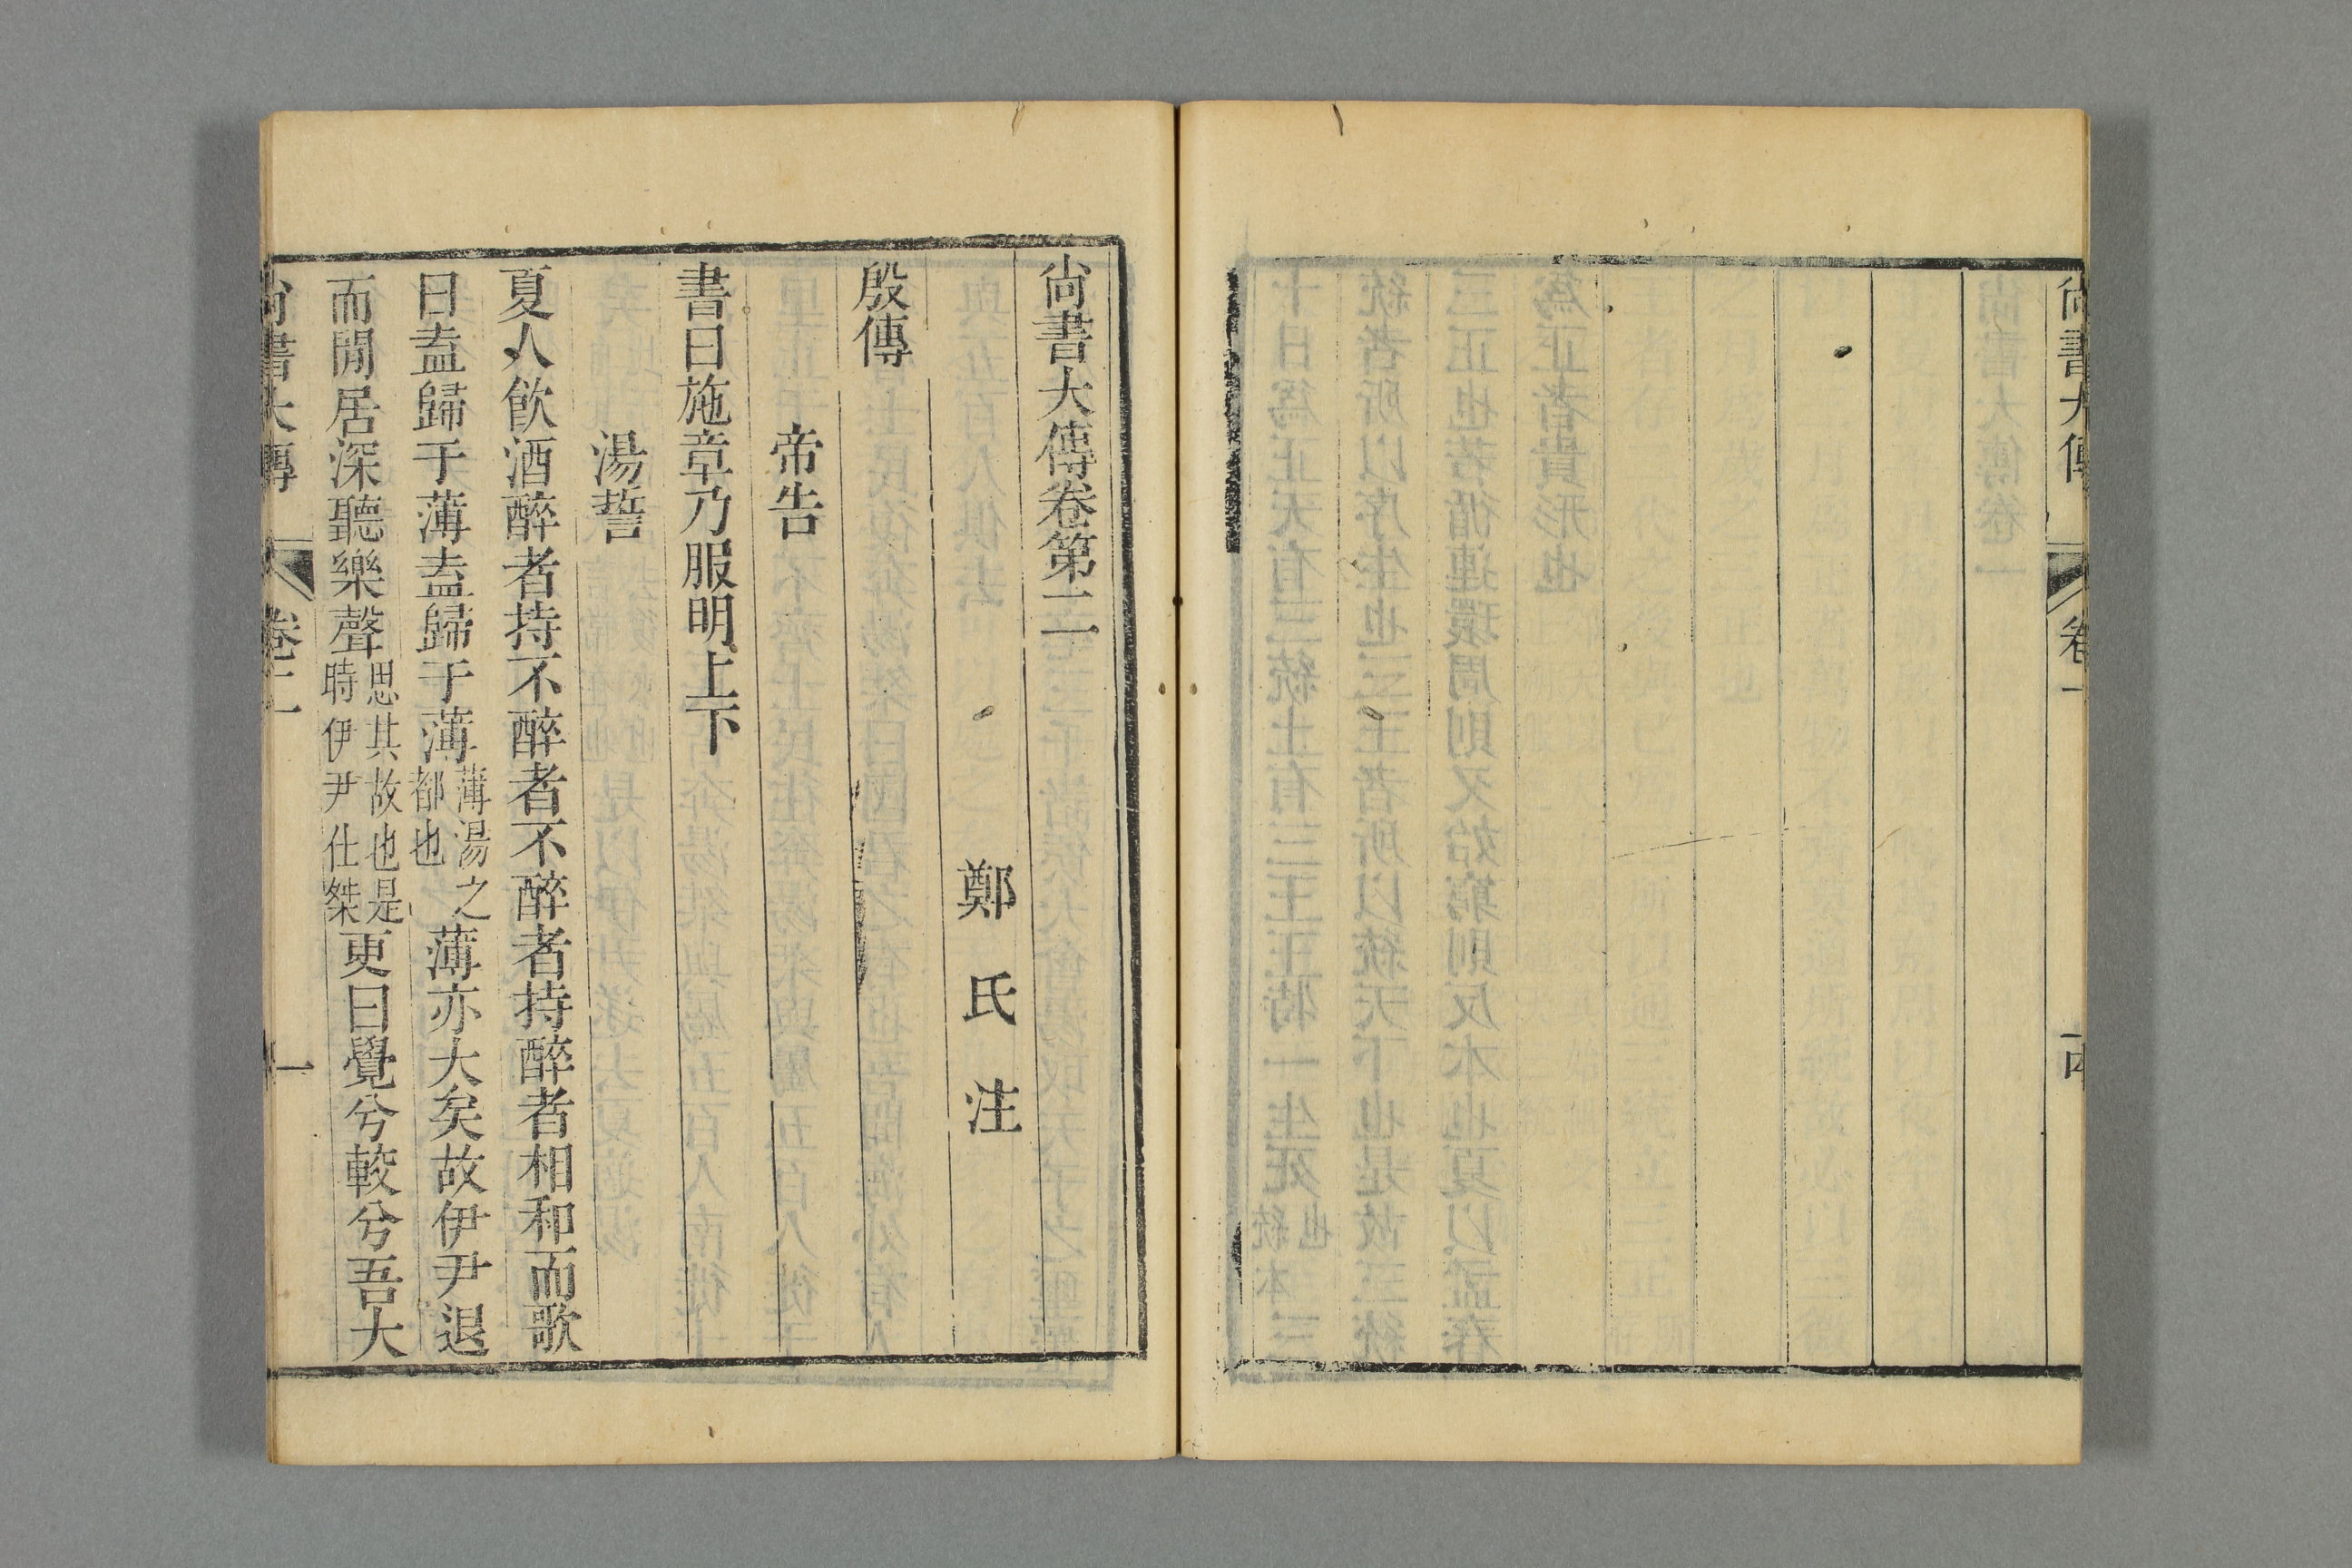 尙書大傳
卷一
尙書大傳卷第二
鄭氏注
殷傳
帝告
書曰施章乃服明上下
湯誓
夏人飮酒醉者持不醉者不醉者持醉者相和而歌
曰盍歸于薄盍歸于薄薄湯之都也薄亦大矣故伊尹退
而閒居深聽樂聲思其故也是時伊尹仕桀更曰覺兮較兮吾大
尙書大傳
卷二
一